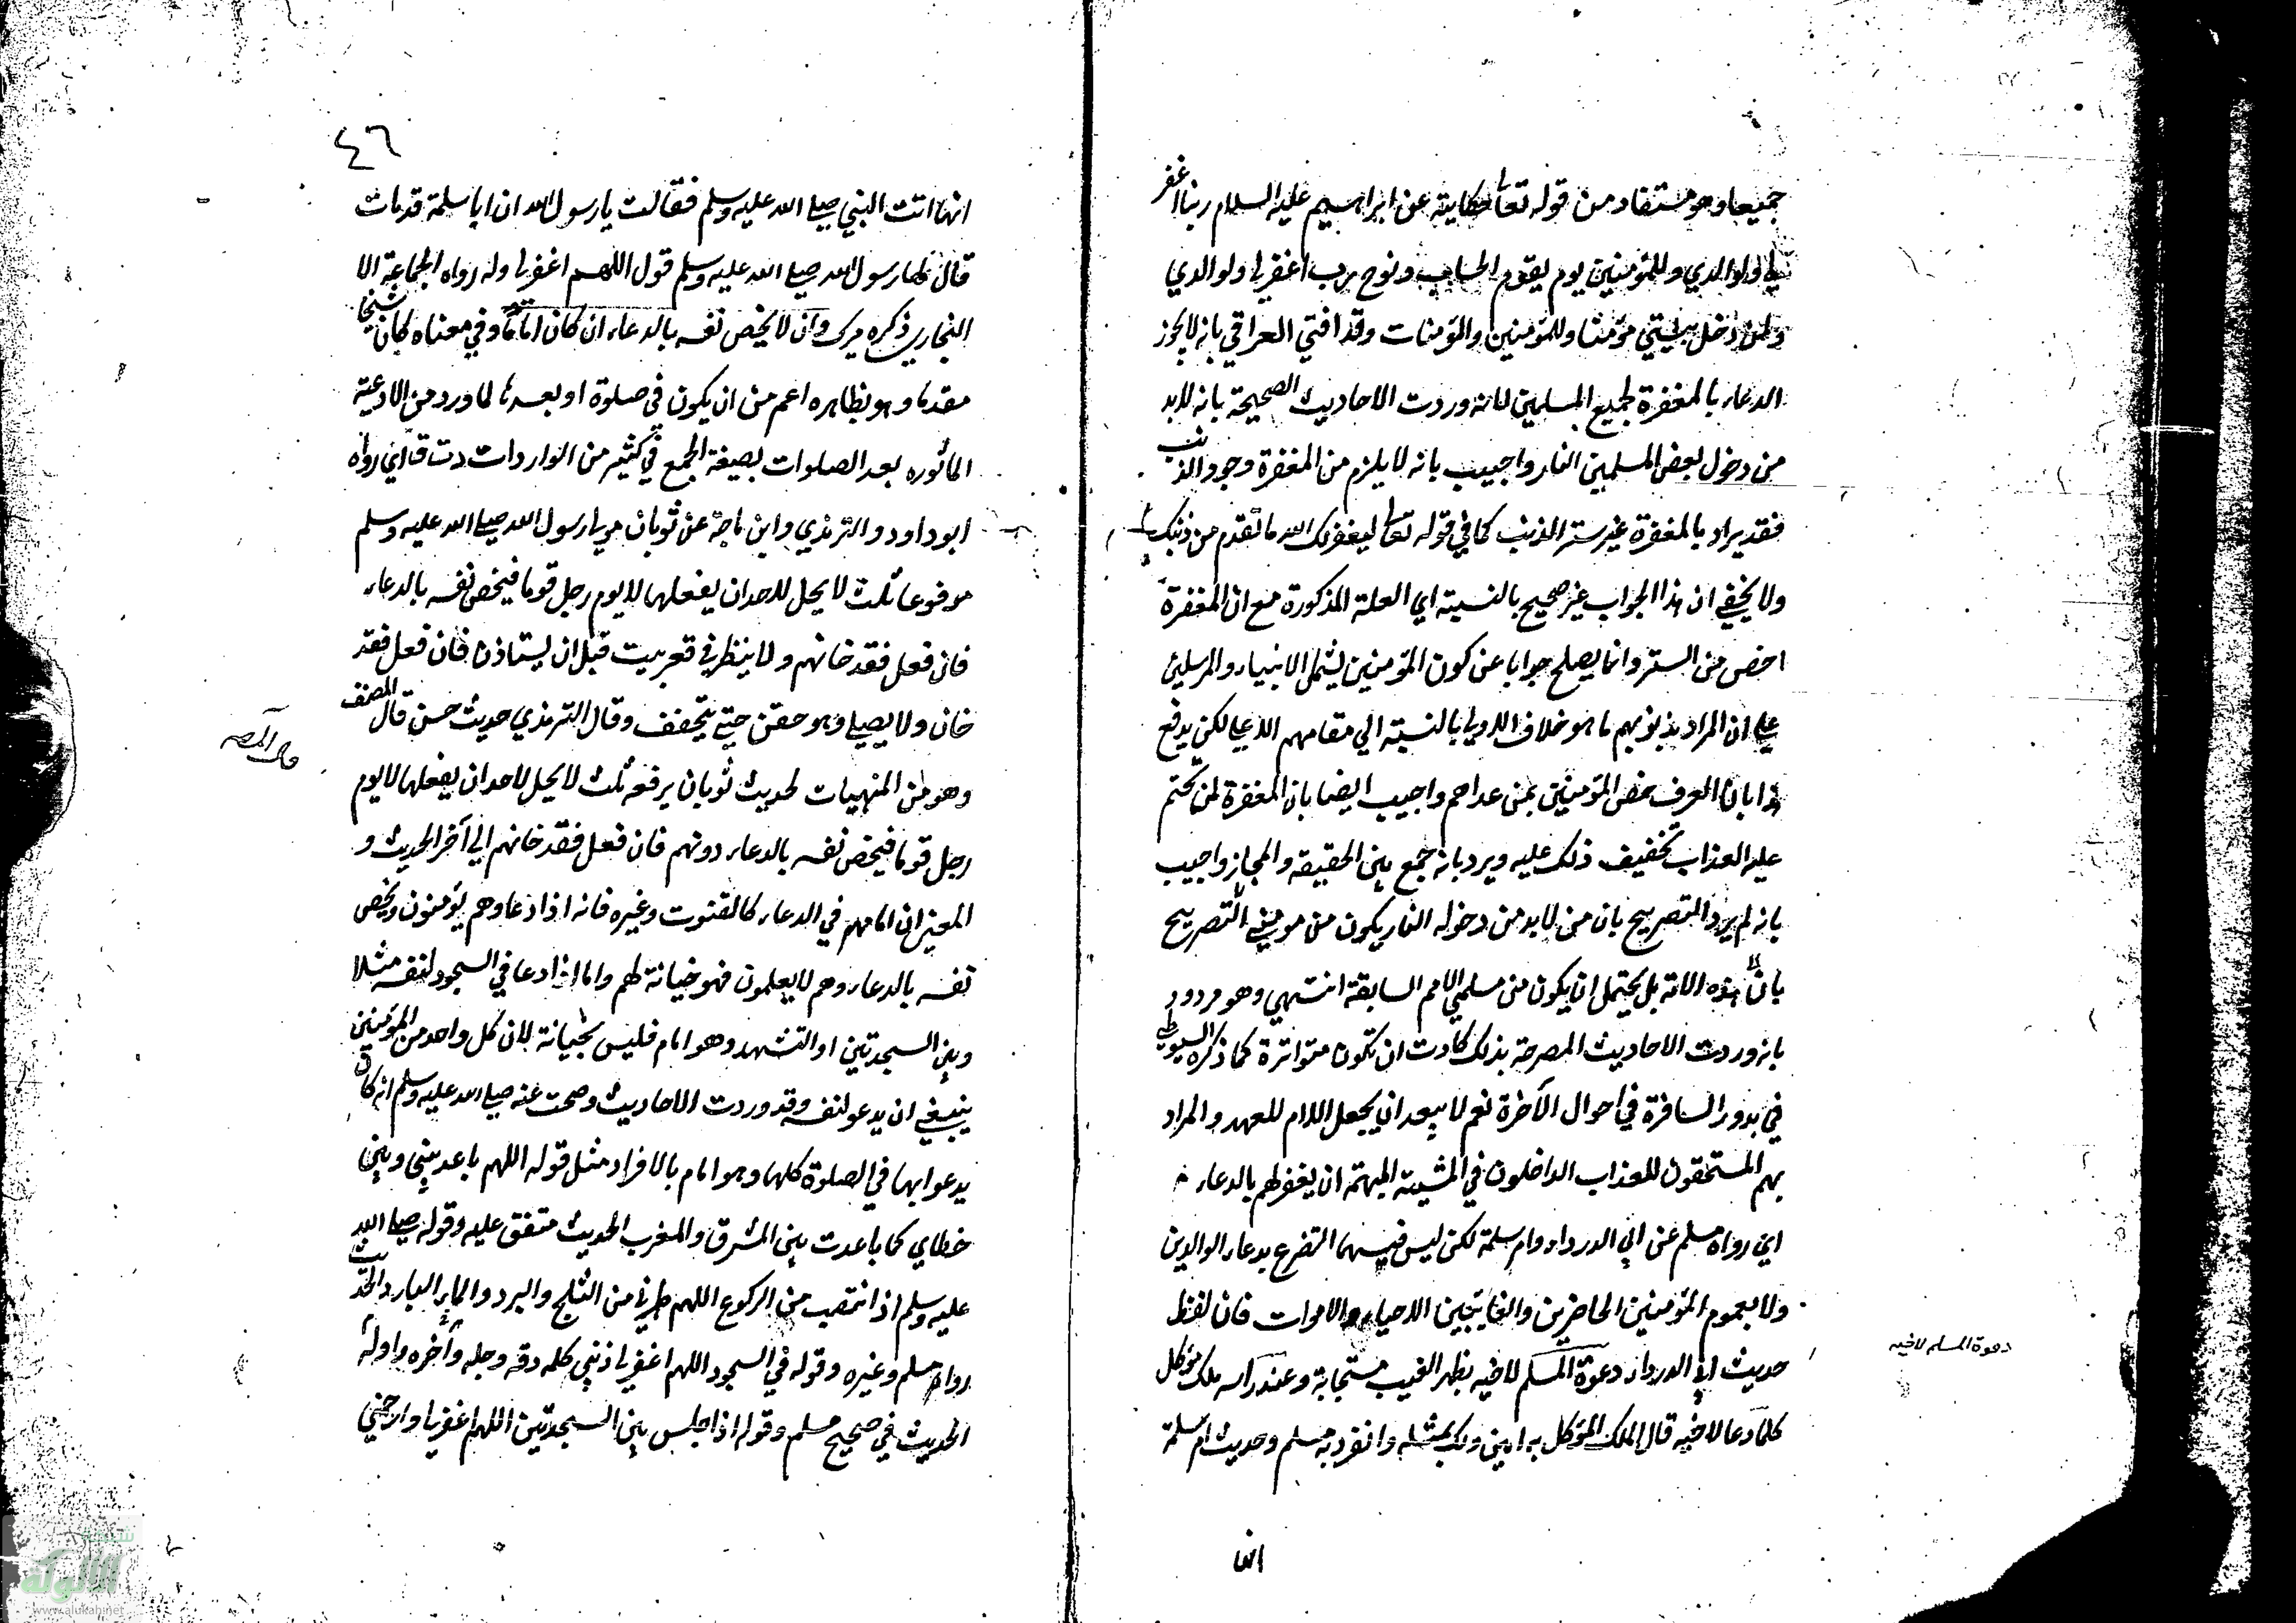 جميعا وهو مستفاد من قوله تعالى حكاية عن ابراهيم عليه السلام ربنا اغفر
لي ولوالدي وللمؤمنين يوم يقوم الحساب ونوح رب اغفر لي ولوالدي
ولمن دخل بيتي مؤمنا وللمؤمنين والمؤمنات وقد افتي العراقي بانه لا يجوز
الدعاء بالمغفرة لجميع المسلمين لانه وردت الاحاديث الصحيحة بانه لابد
من دخول بعض المسلمين النار واجيب بانه لا يلزم من المغفرة وجود الذنب
فقد يراد بالمغفرة غير ستر الذنب كما في قوله تعالى ليغفر لك الله ما تقدم من ذنبك
ولا يخفي ان هذا الجواب غير صحيح بالنسبة اي العلة المذكورة مع ان المغفرة
اخص من الستر وانما يصلح جوابا عن كون المؤمنين يشمل الانبياء والمرسلين
علي ان المراد بذنوبهم ما هو خلاف الاولي بالنسبة الي مقامهم الاعلي لكن يدفع
هذا بان العرف خص المؤمنين بمن عداهم واجيب ايضا بان المغفرة لمن تحتم
عليه العذاب تخفيف ذلك عليه ويرد بانه جمع بين الحقيقة والمجاز واجيب
بانه لم يرد التصريح بان من لابد من دخوله النار يكون من مومني التصريح
بان هذه الامة بل يحتمل ان يكون من مسلمي الامم السابقة انتهي وهو مردود
بانه وردت الاحاديث المصرحة بذلك كادت ان تكون متواترة كما ذكره السيوطي
في بدور السافرة في احوال الآخرة نعم لا يبعد ان يجعل اللام للعهد والمراد
بهم المستحقون للعذاب الداخلون في المشيئة المبهمة ان يغفر لهم بالدعاء م
اي رواه مسلم عن ابي الدرداء وام سلمة لكن ليس فيهما التضرع بدعاء الوالدين
ولا بعموم المؤمنين الحاضرين والغايبين الاحياء والاموات فان لفظ
حديث ابي الدرداء دعوة المسلم لاخيه بظهر الغيب مستجابة وعند راسه ملك مؤكل
كلما دعا لاخيه قال الملك المؤكل به امين ولك بمثله وانفرد به مسلم وحديث ام سلمة
دعوة المسلم لاخيه
انها
٤٦
انها اتت النبي صلي الله عليه وسلم فقالت يا رسول الله ان ابا سلمة قد مات
قال لها رسول الله صلي الله عليه وسلم قولي اللهم اغفر لي وله رواه الجماعة الا
البخاري ذكره ميرك وان لا يخص نفسه بالدعاء ان كان اماما وفي معناه كان شيخا
مقدما وهو بظاهره اعم من ان يكون في صلوة او بعدها لما ورد من الادعية
الماثوره بعد الصلوات بصيغة الجمع في كثير من الواردات د ت ق اي رواه
ابو داود والترمذي وابن ماجة عن ثوبان مولي رسول الله صلي الله عليه وسلم
مرفوعا ثلث لا يحل لاحد ان يفعلها لا يوم رجل قوما فيخص نفسه بالدعاء
فان فعل فقد خانهم ولا ينظر في قعر بيت قبل ان يستاذن فان فعل فقد
خان ولا يصلي وهو حقن حتي يتخفف وقال الترمذي حديث حسن قال المصنف
وهو من المنهيات لحديث ثوبان يرفعه ثلث لا يحل لاحد ان يفعلها لا يوم
رجل قوما فيخص نفسه بالدعاء دونهم فان فعل فقد خانهم الي آخر الحديث و
المعني ان امامهم في الدعاء كالقنوت وغيره فانه اذا دعا وهم يؤمنون ويخص
نفسه بالدعاء وهم لا يعلمون فهو خيانة لهم واما اذا دعا في السجود لنفسه مثلا
وبين السجدتين او التشهد وهو امام فليس بخيانة لان كل واحد من المؤمنين
ينبغي ان يدعو لنفسه وقد وردت الاحاديث وصحت عنه صلي الله عليه وسلم انه كان
يدعو ابها في الصلوة كلها وهو امام بالافراد مثل قوله اللهم باعد بيني وبين
خطاي كما باعدت بين المشرق والمغرب الحديث متفق عليه وقوله صلي الله
عليه وسلم اذا انتصب من الركوع اللهم طهرني من الثلج والبرد والماء البارد الحديث
رواه مسلم وغيره وقوله في السجود اللهم اغفر لي ذنبي كله دقه وجله وآخره واوله
الحديث في صحيح مسلم وقوله اذا جلس بين السجدتين اللهم اغفر لي وارحمني
شبكة
الألوكة
www.alukah.net